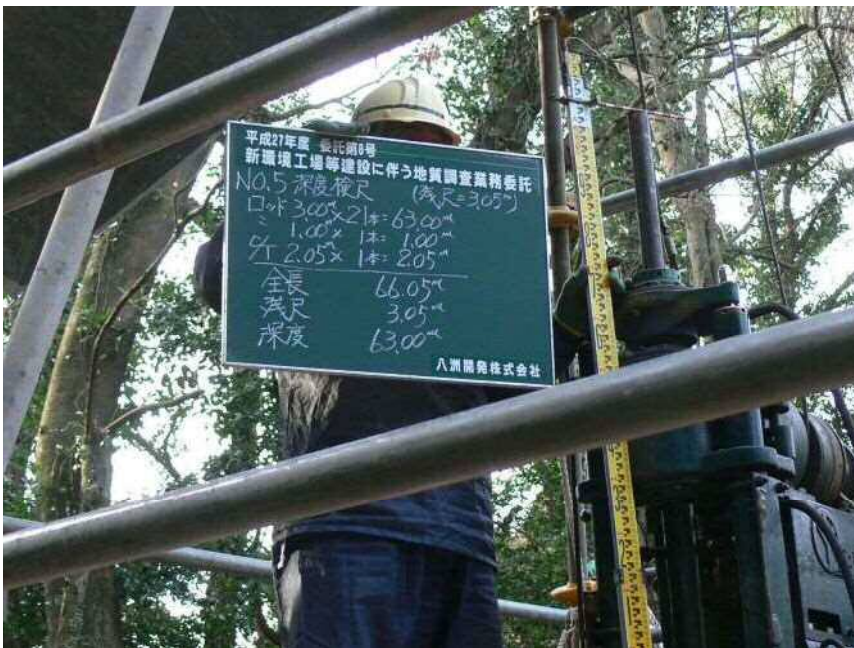 平成27年度 委託第8号
新環境工場等建設に伴う地質調査業務委託
NO.5 深度検尺 (残尺=3.05m)
ロッド 3.00m×21本=63.00m
〃 1.00m× 1本= 1.00m
C/T 2.05× 1本= 2.05m
全長 66.05m
残尺 3.05m
深度 63.00m
八洲開発株式会社